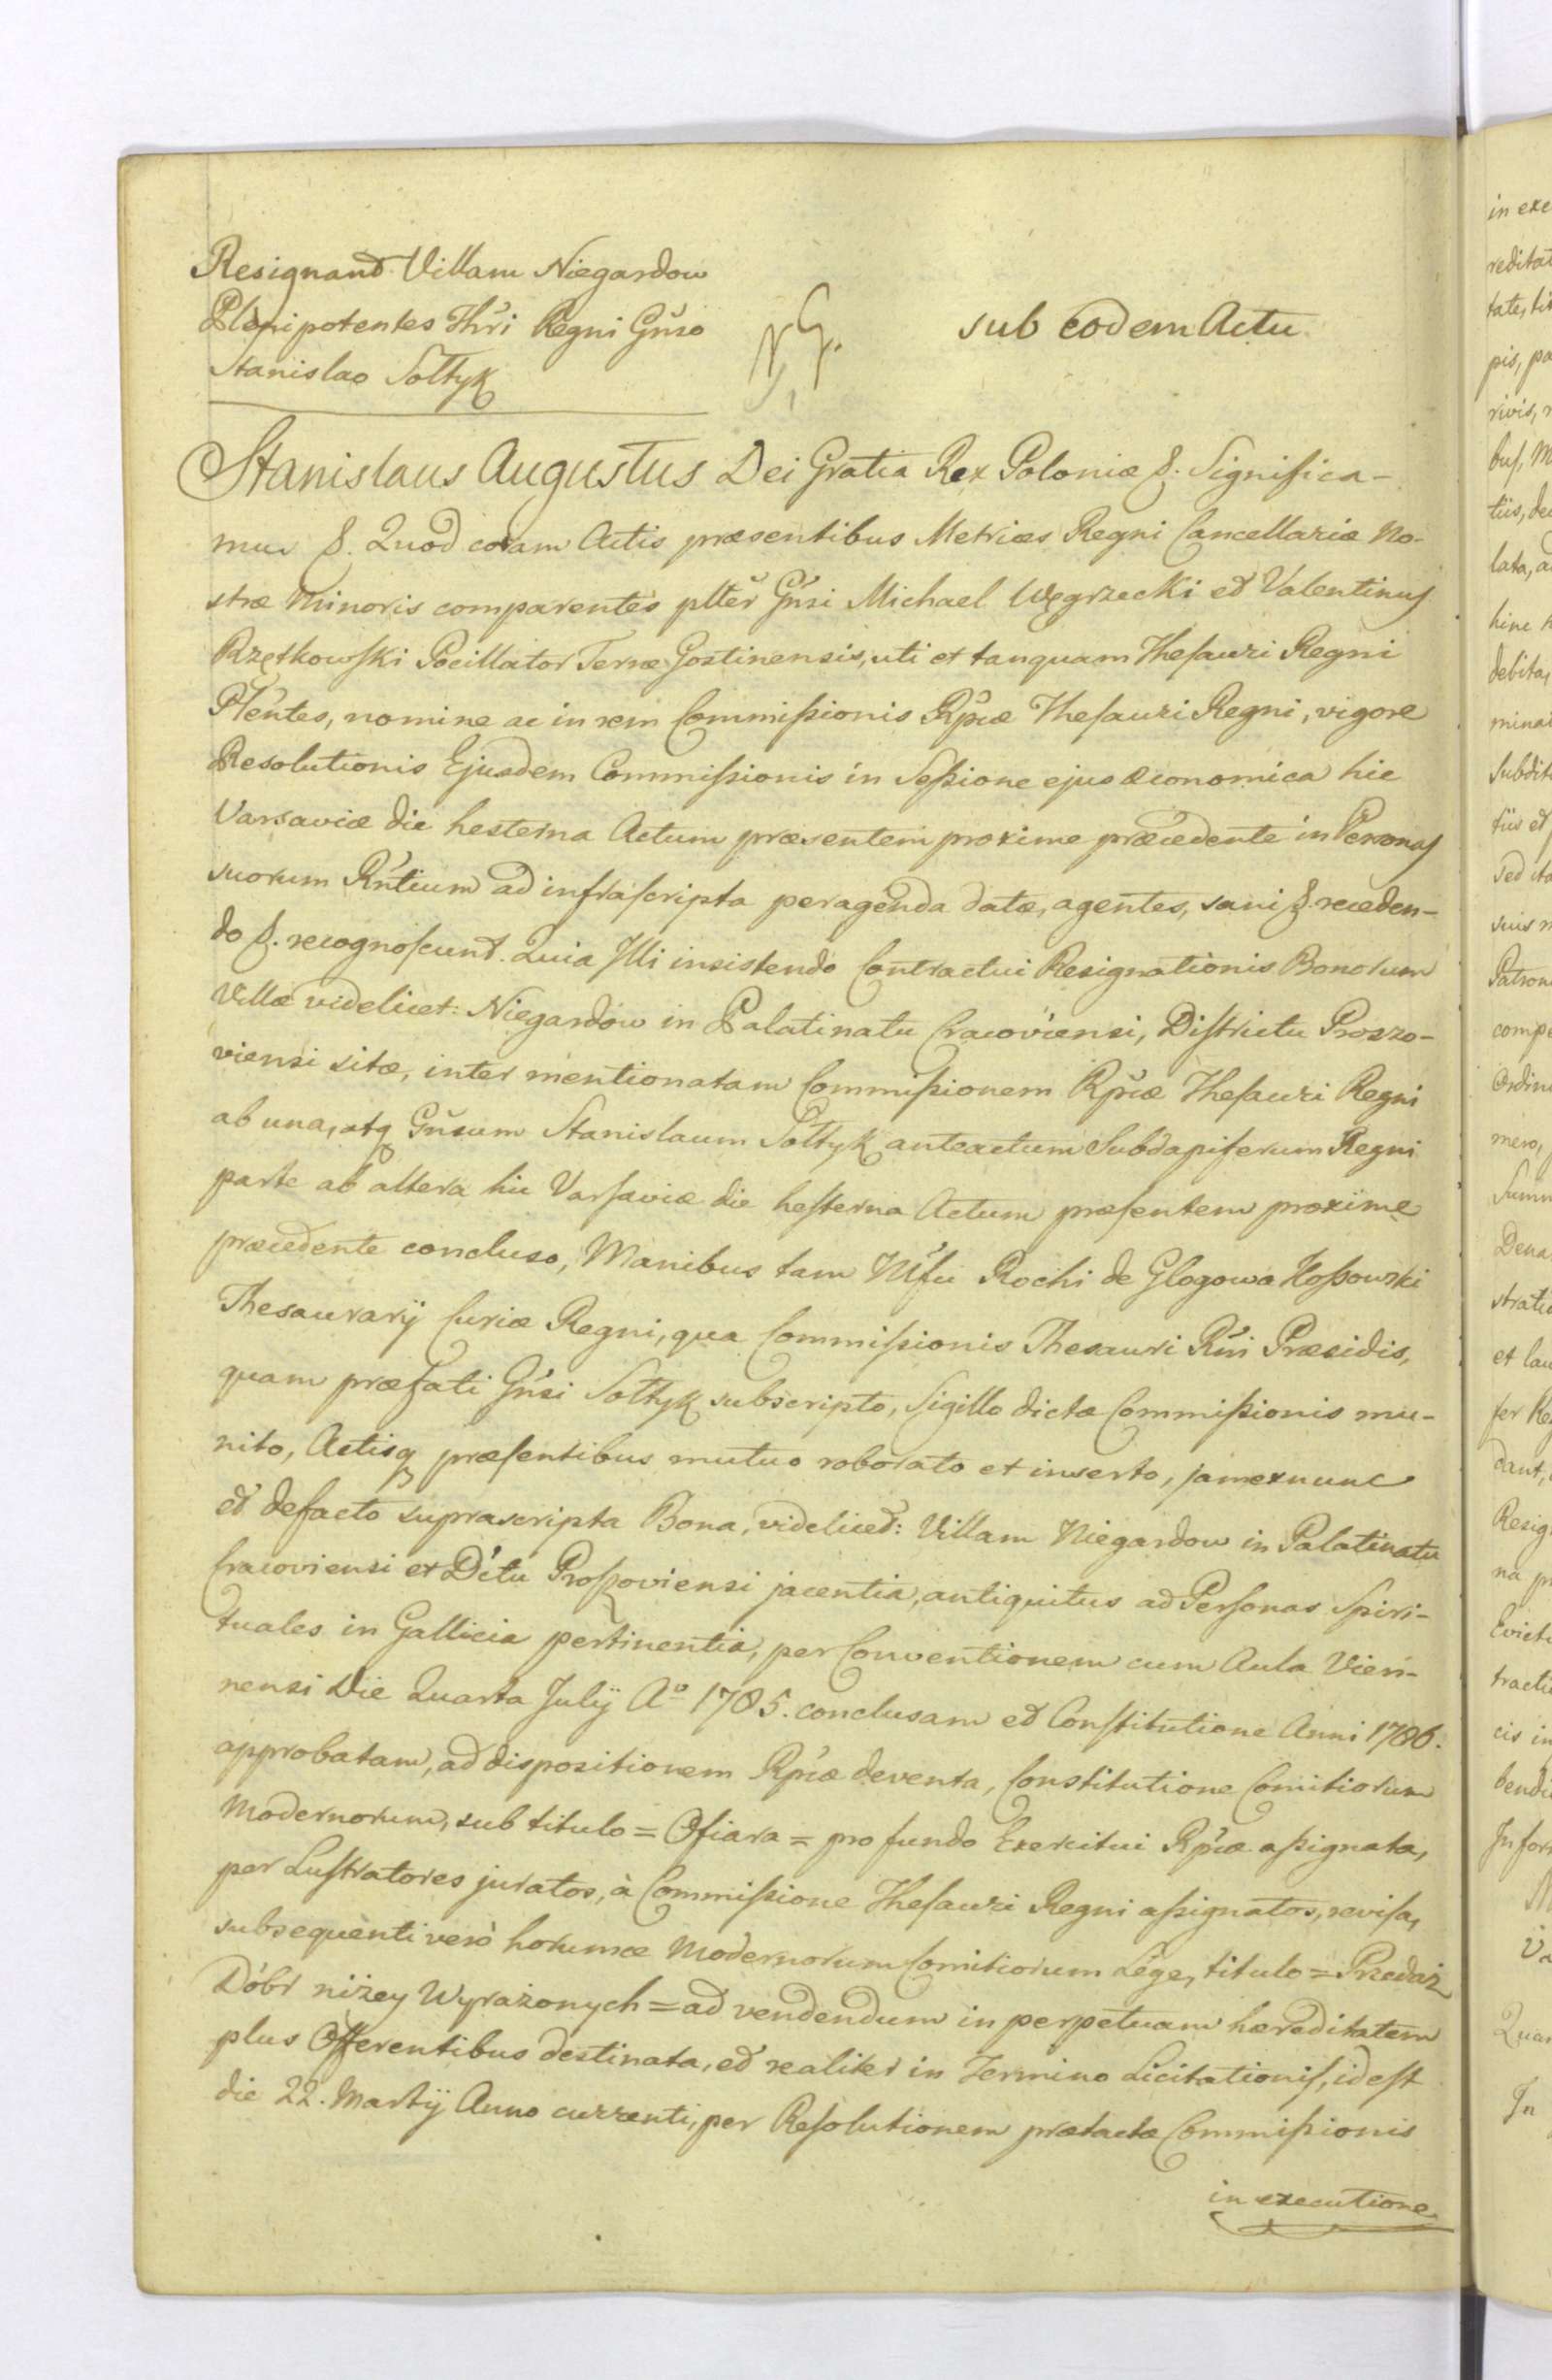 Resignant Villam Niegardow
Plenipotentes Thri Regni Gnso
Stanislao Sołtyk
sub eodem Actu
Stanislaus Augustus Dei Gratia Rex Poloniæ &. Significa-
mus &. Quod coram Actis præsentibus Metrices Regni Cancellariæ No-
stræ Minoris comparentes plter Gnsi Michael Węgrzecki et Valentinus
Rzętkowski Pocillator Terræ Gostinensis, uti et tanquam Thesauri Regni
Pltentes, nomine ac in rem Commissionis Rpcæ Thesauri Regni, vigore
Resolutionis Ejusdem Commissionis in Sessione ejus œconomica hic
Varsaviæ die hesterna Actum præsentem proxime præcedente in Personas
suorum Rntium ad infrascripta peragenda datæ, agentes, sani &. receden-
do &. recognoscunt. Quia Illi insistendo Contractui Resignationis Bonorum
Villæ videlicet: Niegardow in Palatinatu Cracoviensi, Districtu Proszo-
viensi sitæ, inter mentionatam Commissionem Rpcæ Thesauri Regni
ab una, atq Gnsum Stanislaum Sołtyk anteactum Subdapiferum Regni
parte ab altera hic Varsaviæ die hesterna Actum præsentem proxime
præcedente concluso, Manibus tam Mfci Rochi de Glogowa Kossowski
Thesaurarij Curiæ Regni, qua Commissionis Thesauri Rni Præsidis,
quam præfati Gnsi Sołtyk subscripto, Sigillo dictæ Commissionis mu-
nito, Actisq præsentibus mutuo roborato et inserto, jamexnunc
et defacto suprascripta Bona, videlicet: Villam Niegardow in Palatinatu
Cracoviensi et Dctu Proszoviensi jacentia, antiquitus ad Personas Spiri-
tuales in Gallicia pertinentia, per Conventionem cum Aula Vien-
nensi Die Quarta Julij Aº 1785. conclusam et Constitutione Anni 1786.
approbatam, ad dispositionem Rpcæ deventa, Constitutione Comitiorum
Modernorum, sub titulo = Ofiara = pro fundo Exercitui Rpcæ assignata,
per Lustratores juratos, à Commissione Thesauri Regni assignatos, revisa,
subsequenti verò horumce Modernorum Comitiorum Lege, titulo = Przedaż
Dóbr niżey Wyrażonych = ad vendendum in perpetuam hæreditatem
plus Offerentibus destinata, et realiter in Termino Licitationis, id est
die 22. Martij Anno currenti, per Resolutionem prætactæ Commissionis
in executione